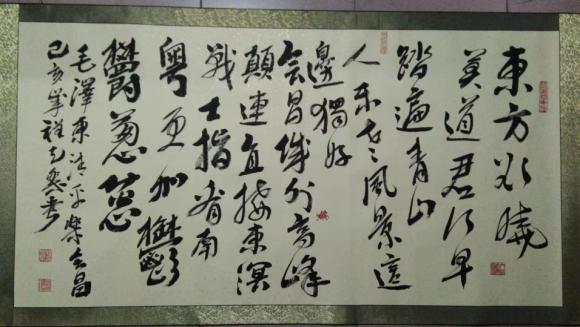 東方欲曉
莫道君行早
踏遍青山
人未老風景這
邊獨好
會昌城外高峰
顛連直接東溟
戰士指看南
粵更加鬱
鬱葱葱
毛澤東清平樂會昌
己亥年祥書